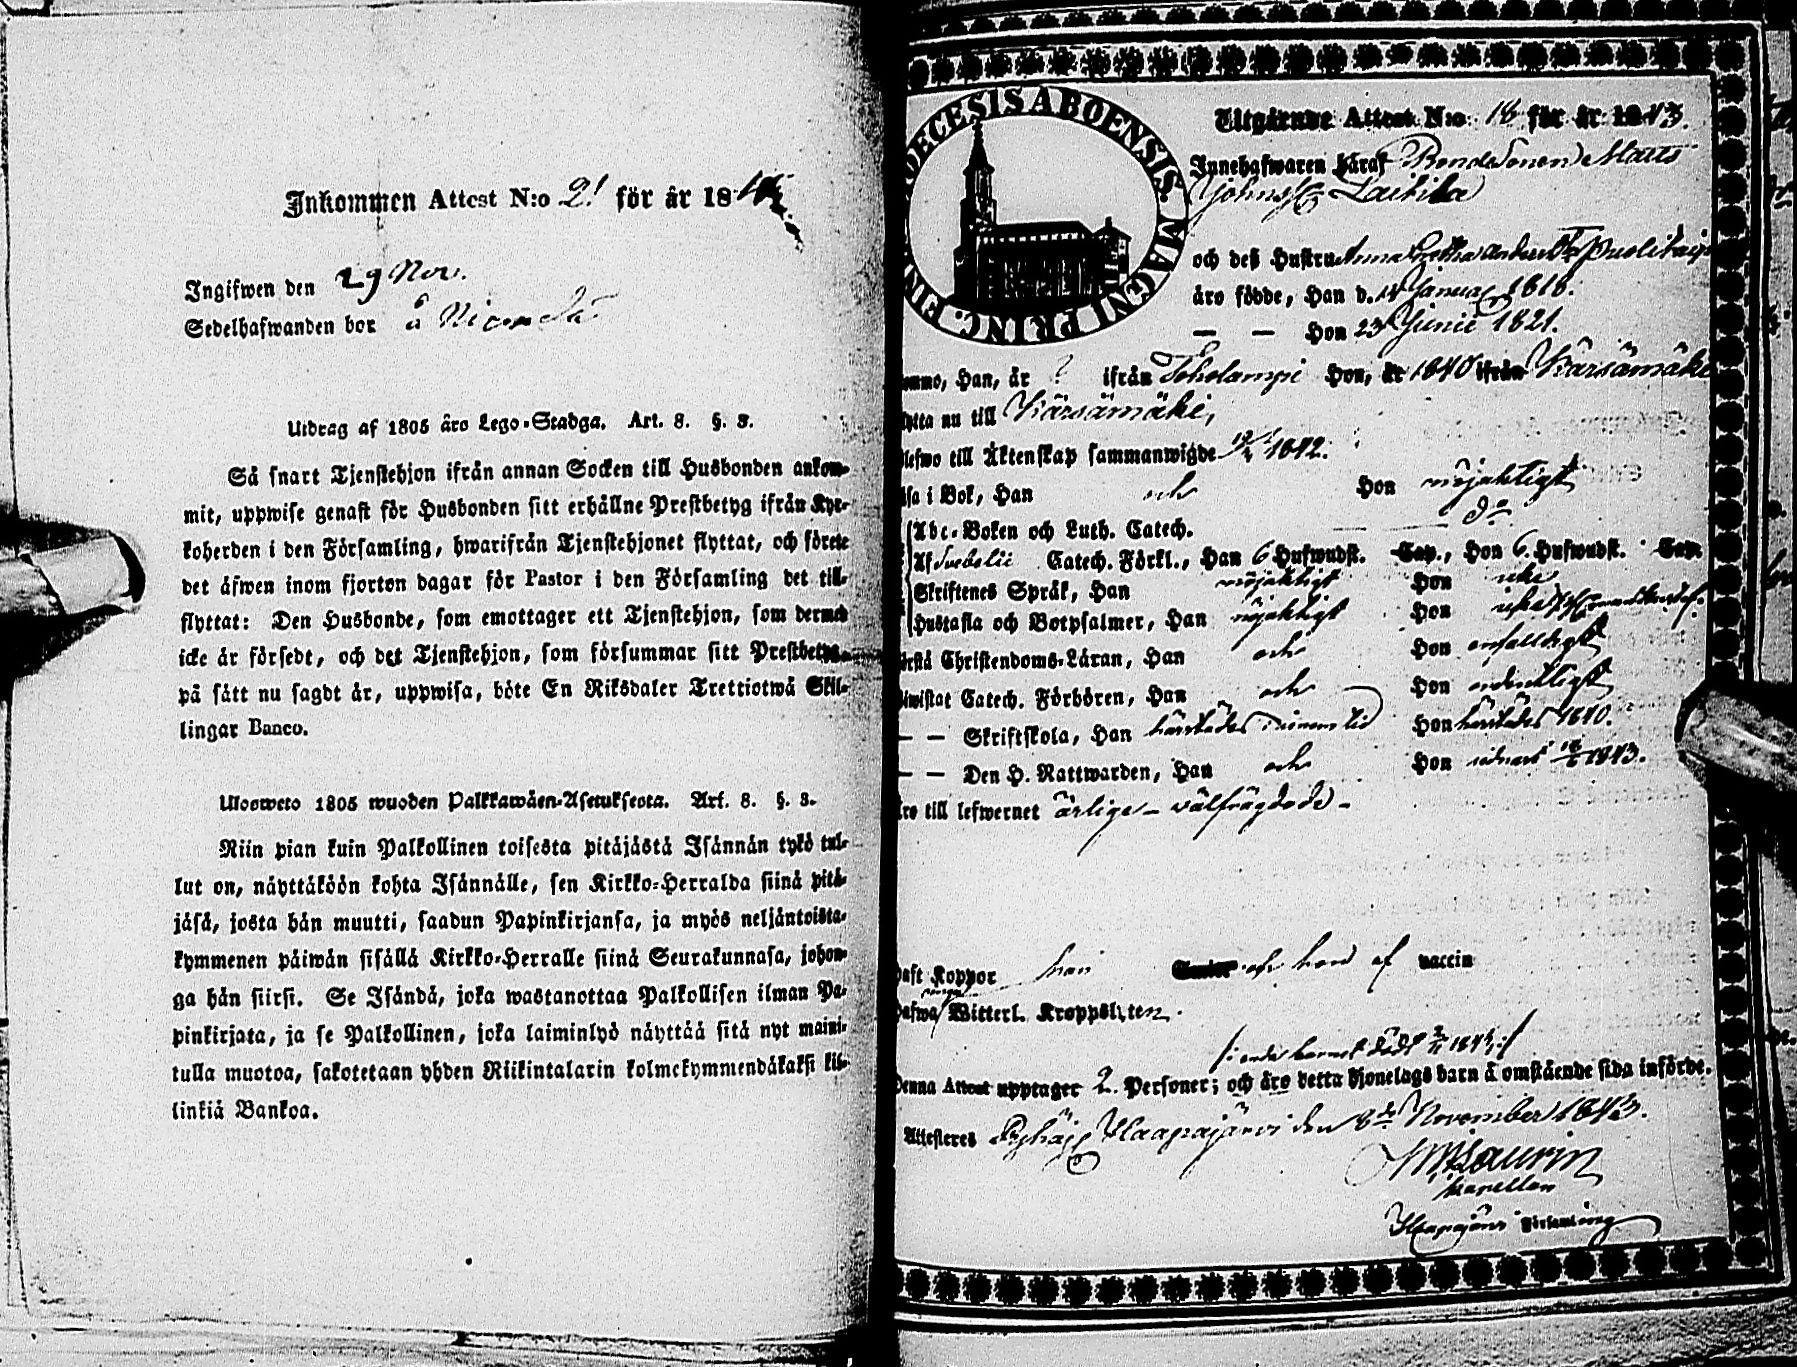 Inkommen Attest N:o 21 för år 18
Ingifwen den 29 Nov.
Sedelhafwanden bor å
Utdrag af 1805 års Lego-Stadga. Art. 8. §. 3.
Så snart Tjenstehjon ifrån annan Socken till Husbonden ankom-
mit, uppwise genast för Husbonden sitt erhållne Prestbetyg ifrån Kyr-
koherden i den Församling, hwarifrån Tjenstehjonet flyttat, och förete
det äfwen inom fjorton dagar för Pastor i den Församling det till-
flyttat: Den Husbonde, som emottager ett Tjenstehjon, som dermed
icke är försedt, och det Tjenstehjon, som försummar sitt Prestbetyg
på sätt nu sagdt är, uppwisa, böte En Riksdaler Trettiotwå Skil-
lingar Banco.
Ulosweto 1805 wuoden Palkkawäen-Asetuksesta. Art. 8. §. 3.
Niin pian kuin Palkollinen toisesta pitäjästä Isännän tykö tul-
lut on, näyttäköön kohta Isännälle, sen Kirkko-Herralda siinä pitä-
jäsä, josta hän muutti, saadun Papinkirjansa, ja myös neljäntoista-
kymmenen päiwän sisällä Kirkko-Herralle siinä Seurakunnasa, johon-
ga hän siirsi. Se Isändä, joka wastanottaa Palkollisen ilman Pa-
pinkirjata, ja se Palkollinen, joka laiminlyö näyttää sitä nyt maini-
tulla muotoa, sakotetaan yhden Riikintalarin kolmekymmendäkaksi kil-
linkiä Bankoa.
DIOECESIS ABOENSIS. MAGNI PRINC. FIN
Utgående Attest N:o 18 för år 1843.
Innehafwaren häraf Bondesonen Matts
Johnss. Laitila
och deß Hustru Anna Gretha Andersd:r Puolitaip
äro födde, Han d. 14 Januar. 1818.
— — Hon 23 Junie 1821.
ommo, Han, år ? ifrån Toholampi Hon, år 1840 ifrån Kärsämäki
ytta nu till Kärsämäki,
lefwo till Äktenskap sammanwigde 1842.
äsa i Bok, Han och Hon nöjaktigt
Abc-Boken och Luth. Catech. d:o
Af Svebelii Catech. Förkl., Han 6 Hufwudst. Cap., Hon 6 Hufwudst. Cap.
Skriftenes Språk, Han nöjaktigt Hon icke
Hustafla och Botpsalmer, Han nöjaktigt Hon icke
örstå Christendoms-Läran, Han och Hon enfalldigt
iwistat Catech. Förhören, Han och Hon ordentligt
— — Skriftskola, Han härstädes i sinom tid Hon härstädes 1840.
— — Den H. Nattwarden, Han och Hon sednast 1843.
äro till lefwernet ärlige - välfrägdade -
haft Koppor han och hon af vaccin
hafwa inga Witterl. Kroppslyten.
/: enda barnet dödt 1843 :/
Denna Attest upptager 2 Personer; och äro detta Hjonelags barn å omstående sida införde.
Attesteres Pyhäj. Haapajärvi den 8de November 1843.
Laurin
kapellan
Haapajärvi Församling